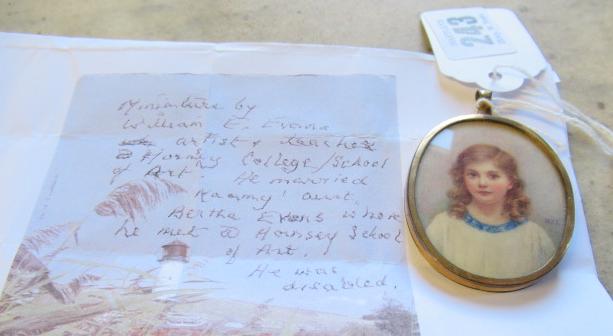 Miniature by
William E. Evans
artist & teacher
@ Hornsey College/School
of Art. He married
aunt.
Bertha Evans whom
he met @ Hornsey School
of Art.
He was
disabled.
243